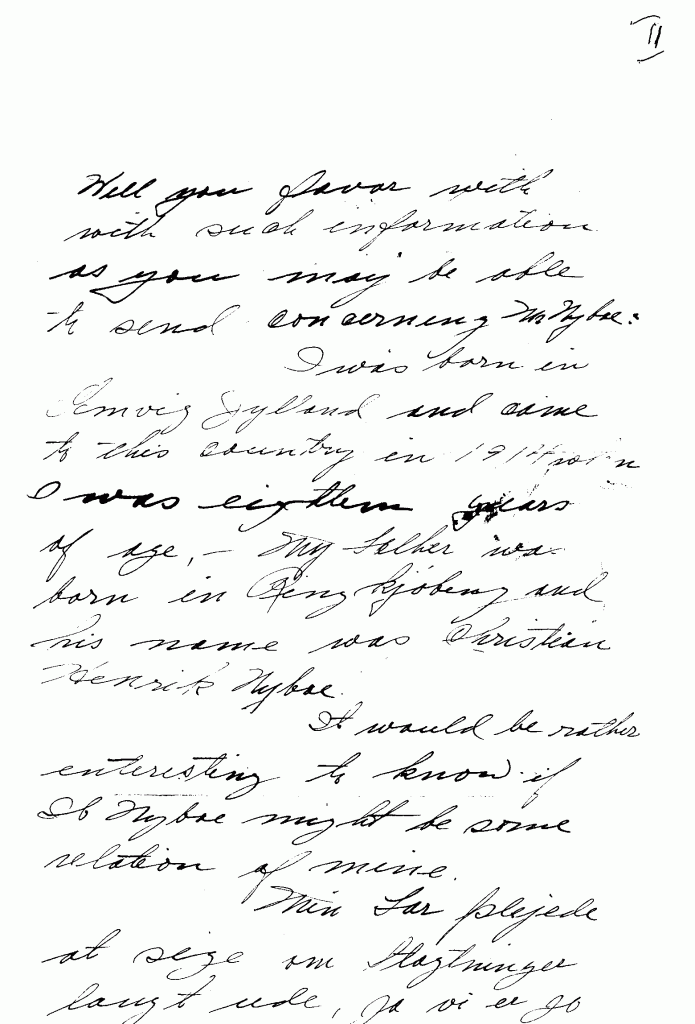 II
Will you favor with
with such information
as you may be able
to send concerning Mr Nyboe:
I was born in
Lemvig Jylland and came
to this country in 1914 when
I was eigthem years
of age, – My Father was
born in Ringkjobeng and
his name was Christian
Henrik Nyboe.
It would be rather
enteresting to know if
Ib Nyboe might be some
relation of mine.
Min Far plejede
at sige om Slagtninger
langt ude, ja vi er jo